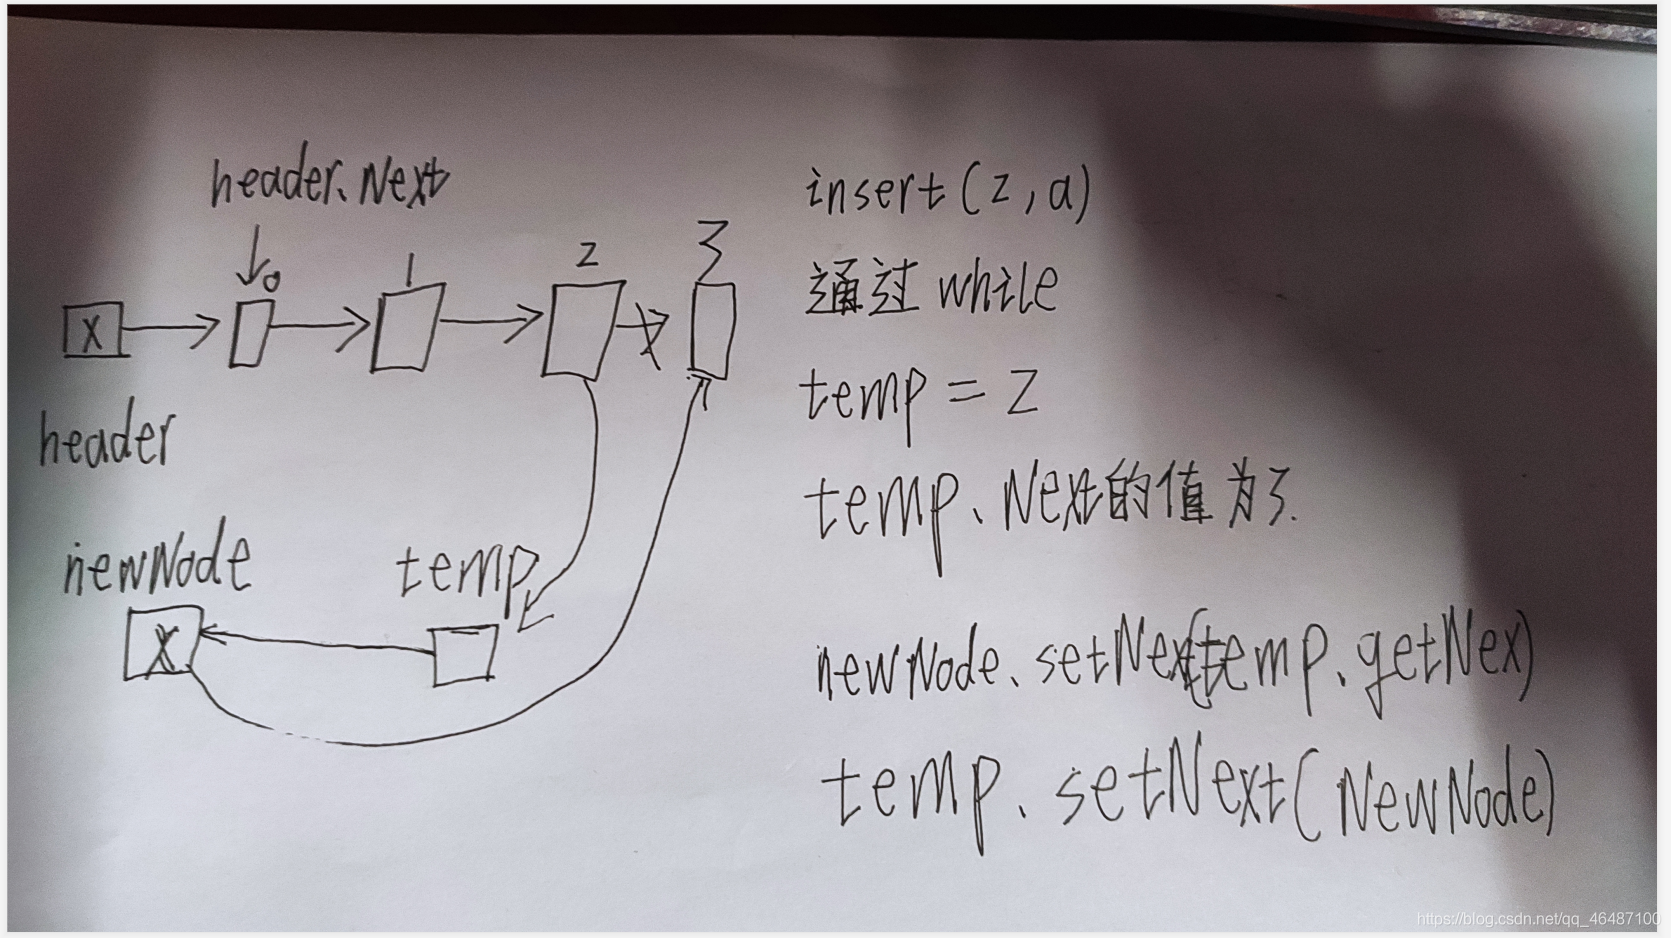 header.Next
0
1
2
3
X
header
newNode
temp
X
insert(2,a)
通过while
temp = 2
temp、Next的值为3.
newNode、setNext(temp、getNex)
temp、setNext(NewNode)
https://blog.csdn.net/qq_46487100